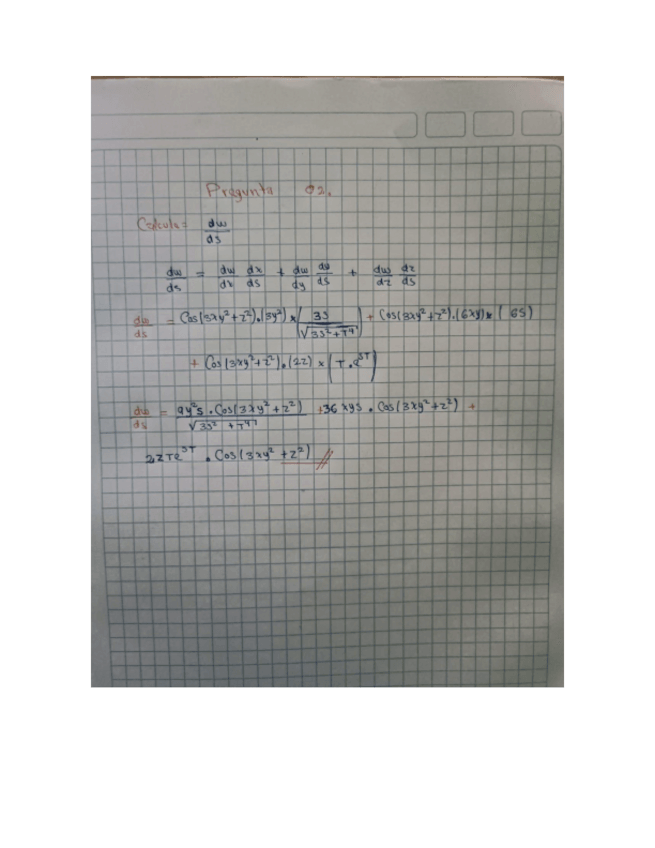 Pregunta 02.
Calcule = dw/ds
dw/ds = dw/dx dx/ds + dw/dy dy/ds + dw/dz dz/ds
dw/ds = Cos(3xy²+z²).(3y²) x (3s/√3s²+T⁴) + Cos(3xy²+z²).(6xy) x (6s)
+ Cos(3xy²+z²).(2z) x (T.e^ST)
dw/ds = 9y²s . Cos(3xy²+z²)/√3s²+T⁴ + 36xys . Cos(3xy²+z²) +
2zTe^ST . Cos(3xy²+z²) //